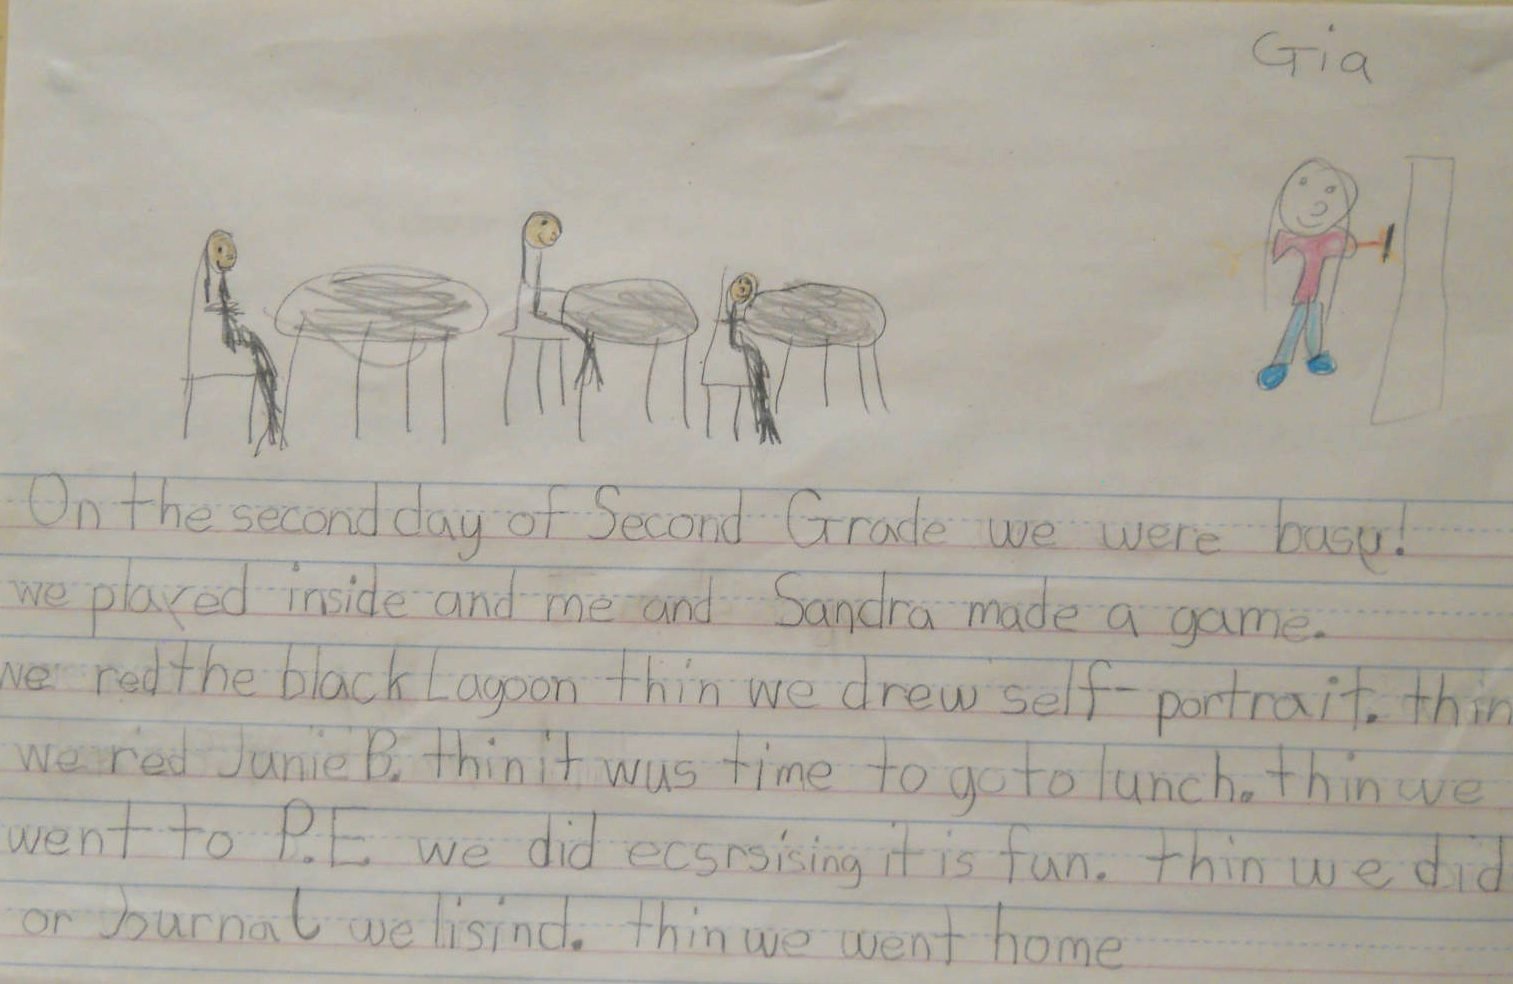 Gia
On the second day of Second Grade we were basy!
we played inside and me and Sandra made a game.
we red the black Lagoon thin we drew self-portrait. thin
we red Junie B. thin it wus time to go to lunch. thin we
went to P.E. we did ecsrsising it is fun. thin we did
or Journal we lisind. thin we went home